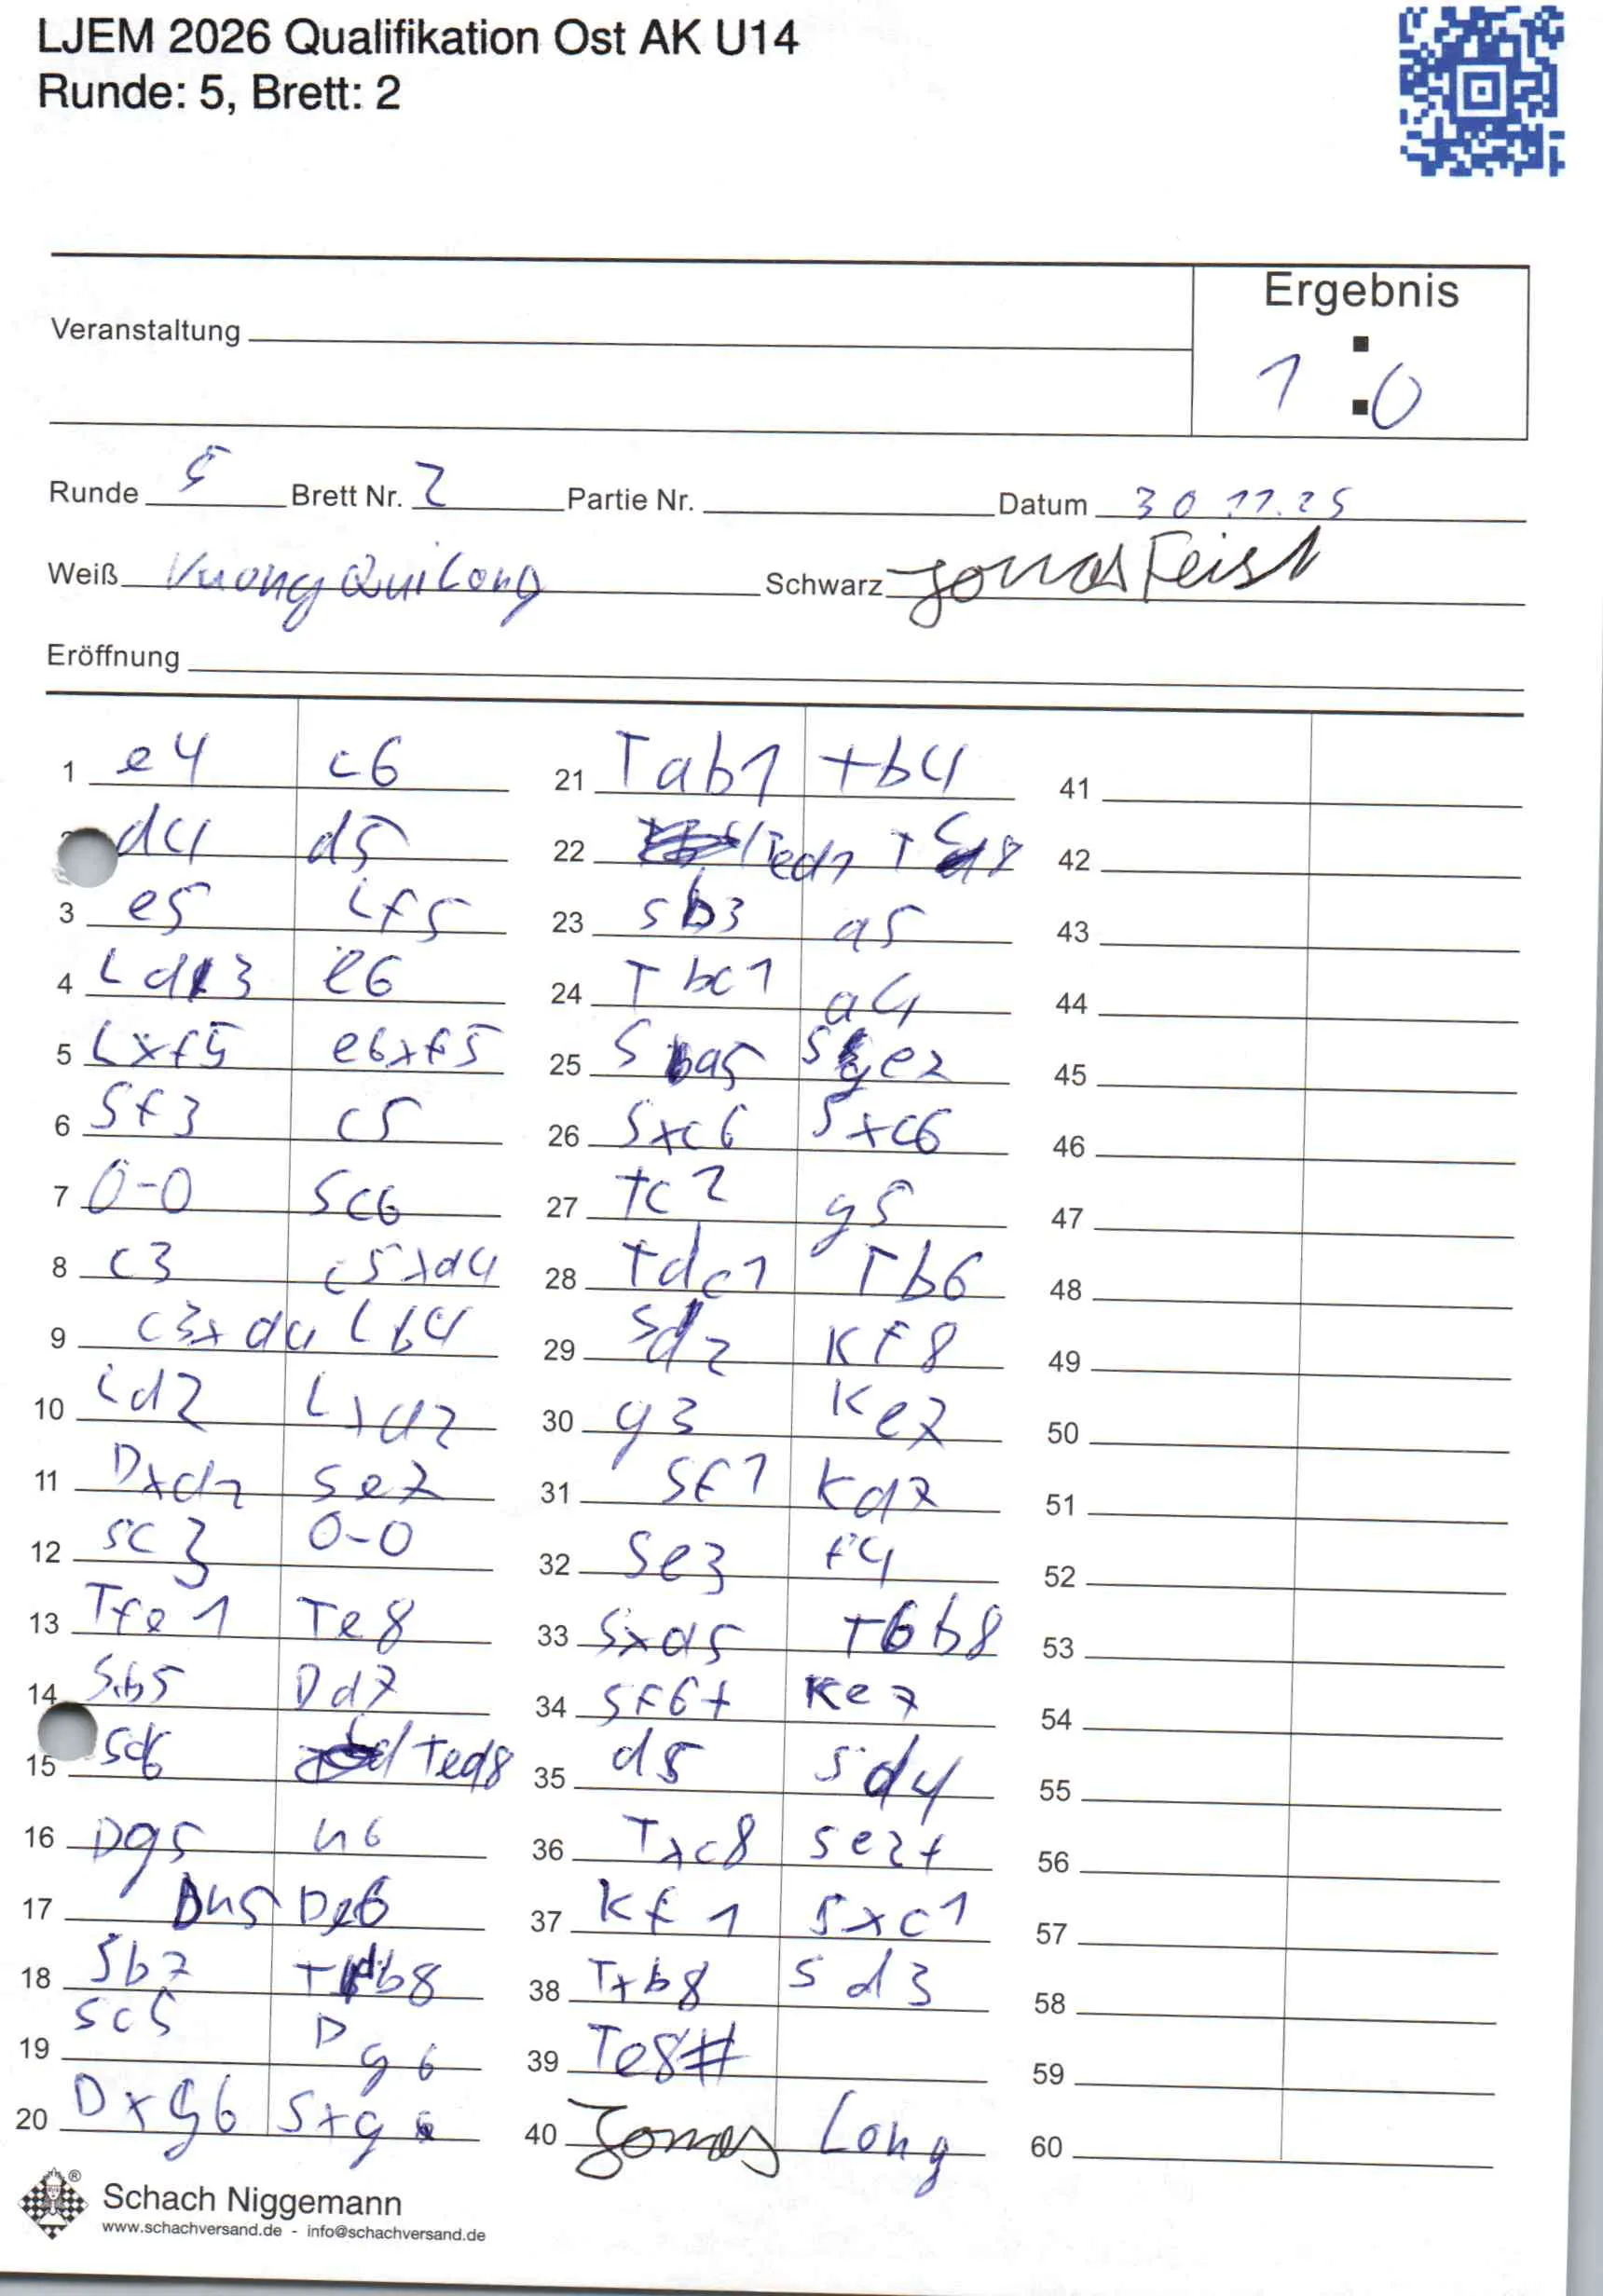 LJEM 2026 Qualifikation Ost AK U14
Runde: 5, Brett: 2
Veranstaltung
Ergebnis
1 : 0
Runde 5 Brett Nr. 2 Partie Nr. Datum 30 11.25
Weiß Vuong Qui Long Schwarz Jonas Feist
Eröffnung
1 e4 c6
d4 d5
3 e5 Lf5
4 Ld3 e6
5 Lxf5 e6xf5
6 Sf3 c5
7 0-0 Sc6
8 c3 c5xd4
9 c3xd4 Lb4
10 Ld2 Lxd2
11 Dxd2 Se7
12 Sc3 0-0
13 Tfe1 Te8
14 Sb5 Dd7
15 Sd6 Ted8
16 Dg5 h6
17 Dh5 De6
18 Sb7 Tdb8
19 Sc5 Dg6
20 Dxg6 Sxg6
21 Tab1 Tb4
22 Ted1 Tc8
23 Sb3 a5
24 Tbc1 a4
25 Sba5 Sge7
26 Sxc6 Sxc6
27 Tc2 g5
28 Tdc1 Tb6
29 Sd2 Kf8
30 g3 Ke7
31 Sf1 Kd7
32 Se3 f4
33 Sxd5 Tbb8
34 Sf6+ Ke7
35 d5 Sd4
36 Txc8 Se2+
37 Kf1 Sxc1
38 Txb8 Sd3
39 Te8#
40 Jonas Long
41
42
43
44
45
46
47
48
49
50
51
52
53
54
55
56
57
58
59
60
Schach Niggemann
www.schachversand.de - info@schachversand.de